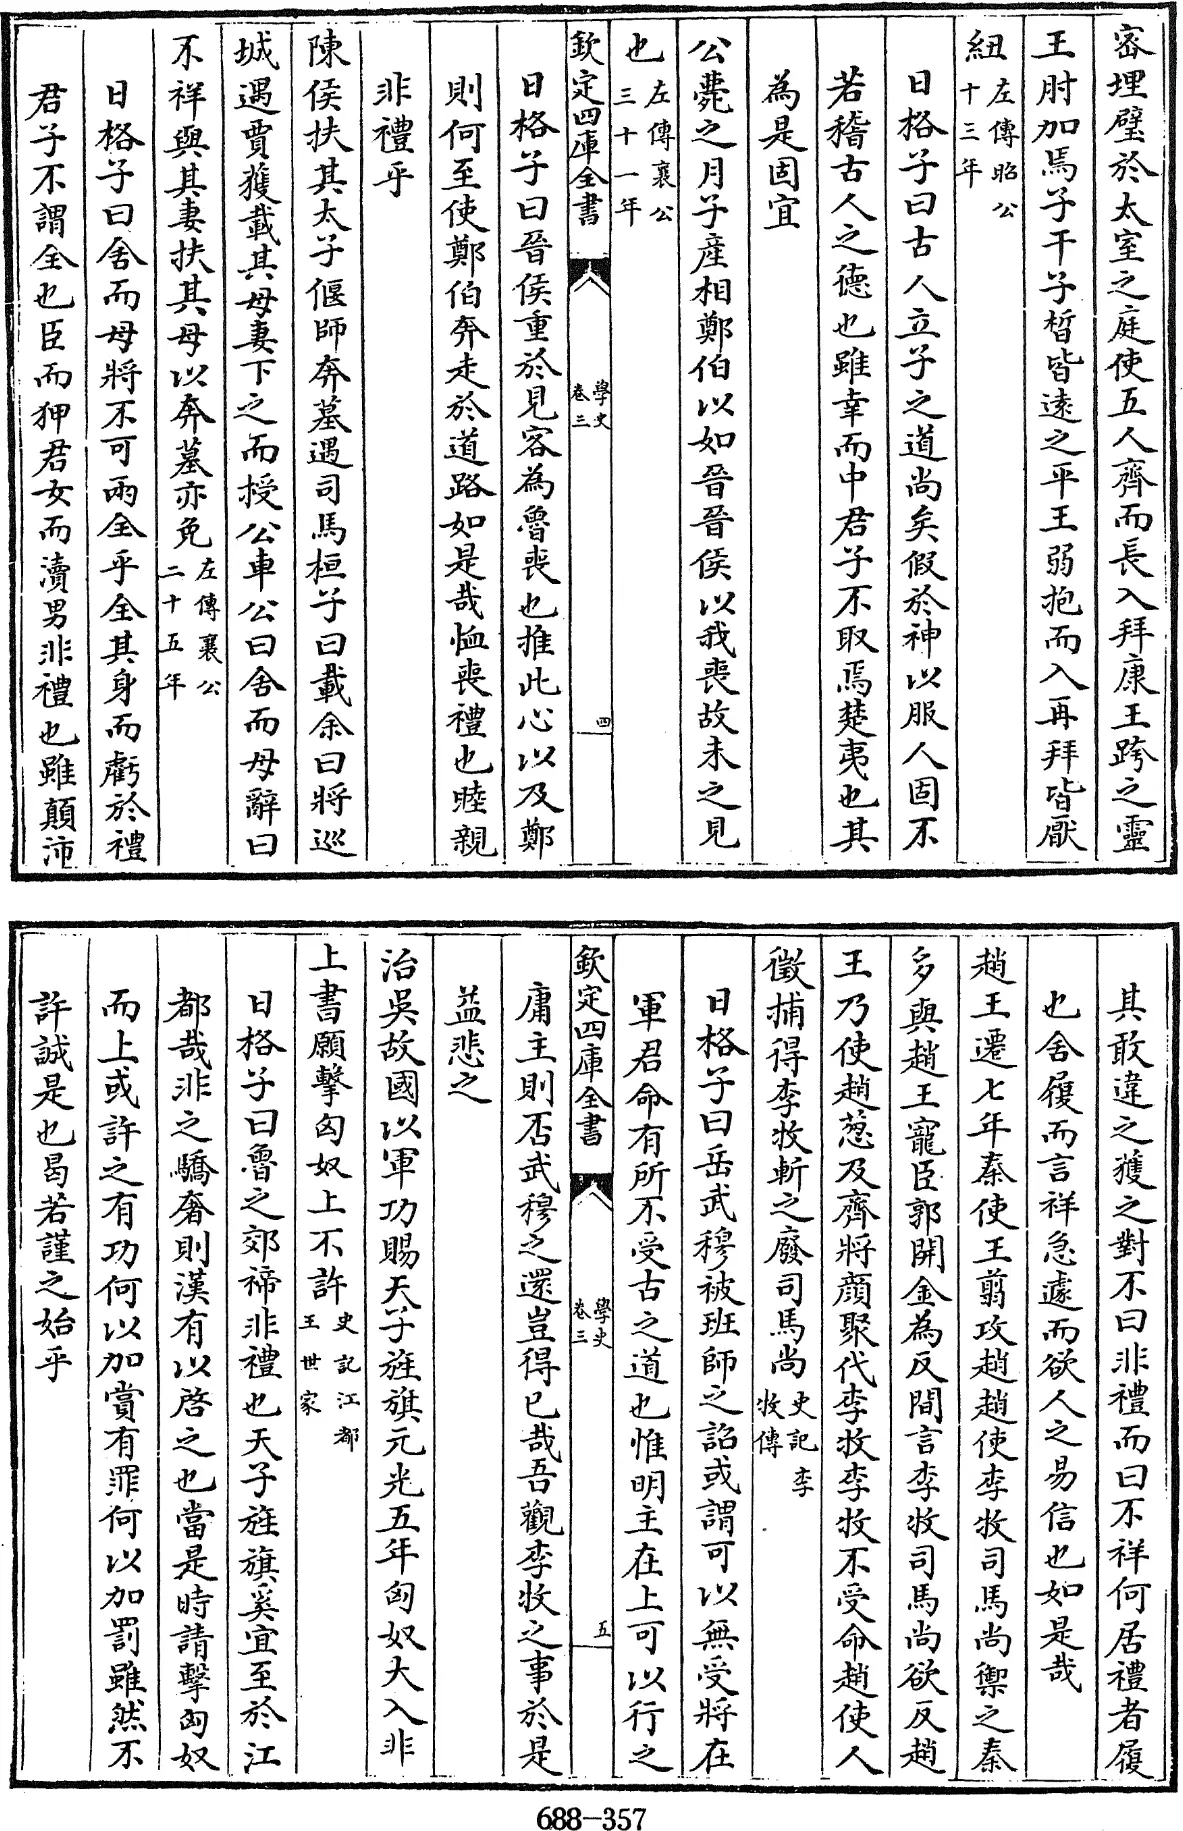 密埋璧於太室之庭使五人齊而長入拜康王跨之靈
王肘加焉子干子晳皆遠之平王弱抱而入再拜皆厭
紐左傳昭公十三年
日格子曰古人立子之道尚矣假於神以服人固不
若稽古人之德也雖幸而中君子不取焉楚夷也其
為是固宜
公薨之月子產相鄭伯以如晉晉侯以我喪故未之見
也左傳襄公三十一年
欽定四庫全書 學史卷三 四
日格子曰晉侯重於見客為魯喪也推此心以及鄭
則何至使鄭伯奔走於道路如是哉恤喪禮也睦親
非禮乎
陳侯扶其太子偃師奔墓遇司馬桓子曰載余曰將巡
城遇賈獲載其母妻下之而授公車公曰舍而母辭曰
不祥與其妻扶其母以奔墓亦免左傳襄公二十五年
日格子曰舍而母將不可兩全乎全其身而虧於禮
君子不謂全也臣而狎君女而瀆男非禮也雖顛沛
其敢違之獲之對不曰非禮而曰不祥何居禮者履
也舍履而言祥急遽而欲人之易信也如是哉
趙王遷七年秦使王翦攻趙趙使李牧司馬尚禦之秦
多與趙王寵臣郭開金為反間言李牧司馬尚欲反趙
王乃使趙蔥及齊將顏聚代李牧李牧不受命趙使人
微捕得李牧斬之廢司馬尚史記李牧傳
日格子曰岳武穆被班師之詔或謂可以無受將在
軍君命有所不受古之道也惟明主在上可以行之
欽定四庫全書 學史卷三 五
庸主則否武穆之還豈得已哉吾觀李牧之事於是
益悲之
治吳故國以軍功賜天子旌旗元光五年匈奴大入非
上書願擊匈奴上不許史記江都王世家
日格子曰魯之郊禘非禮也天子旌旗奚宜至於江
都哉非之驕奢則漢有以啓之也當是時請擊匈奴
而上或許之有功何以加賞有罪何以加罰雖然不
許誠是也曷若謹之始乎
688-357